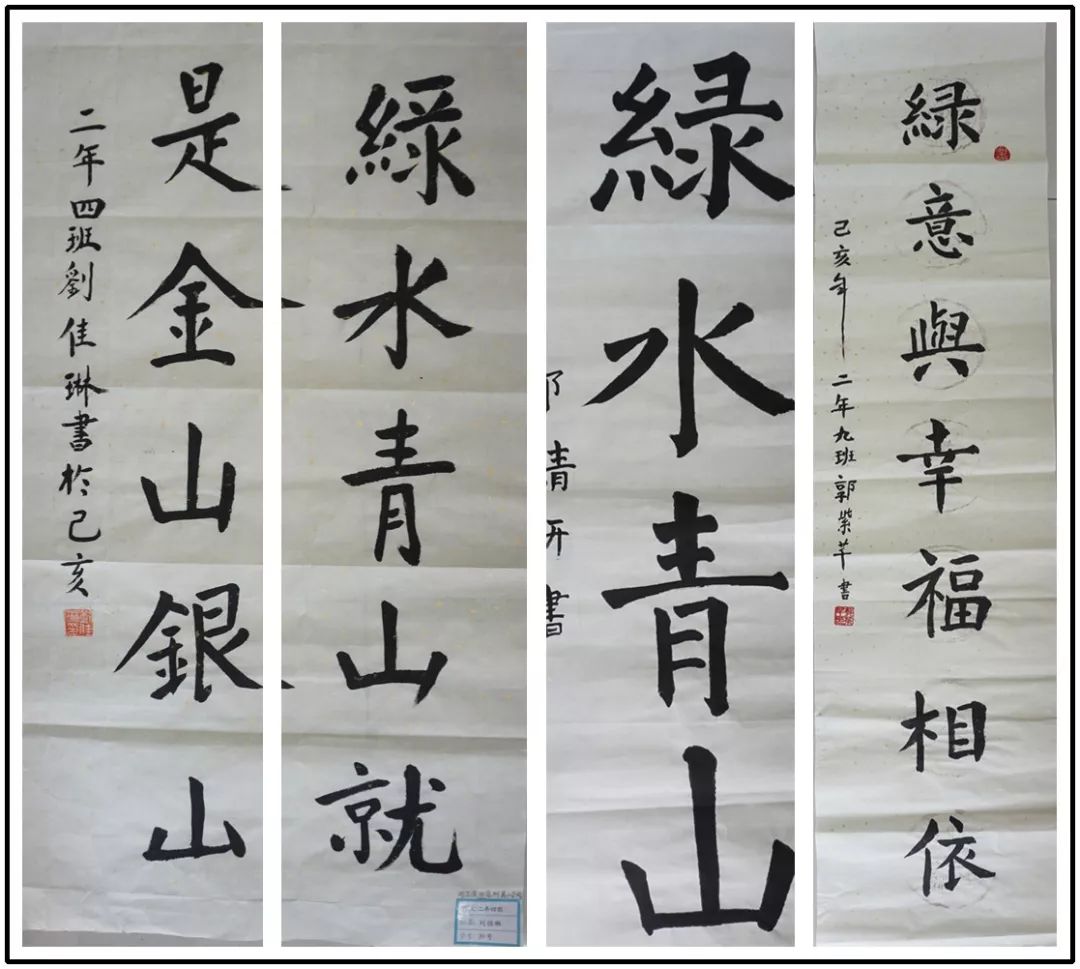 緑意與幸福相依
己亥年 二年九班郭紫芊書
緑水青山
書
綠水青山就
是金山銀山
二年四班劉佳琳書於己亥
二年四班
刘佳琳